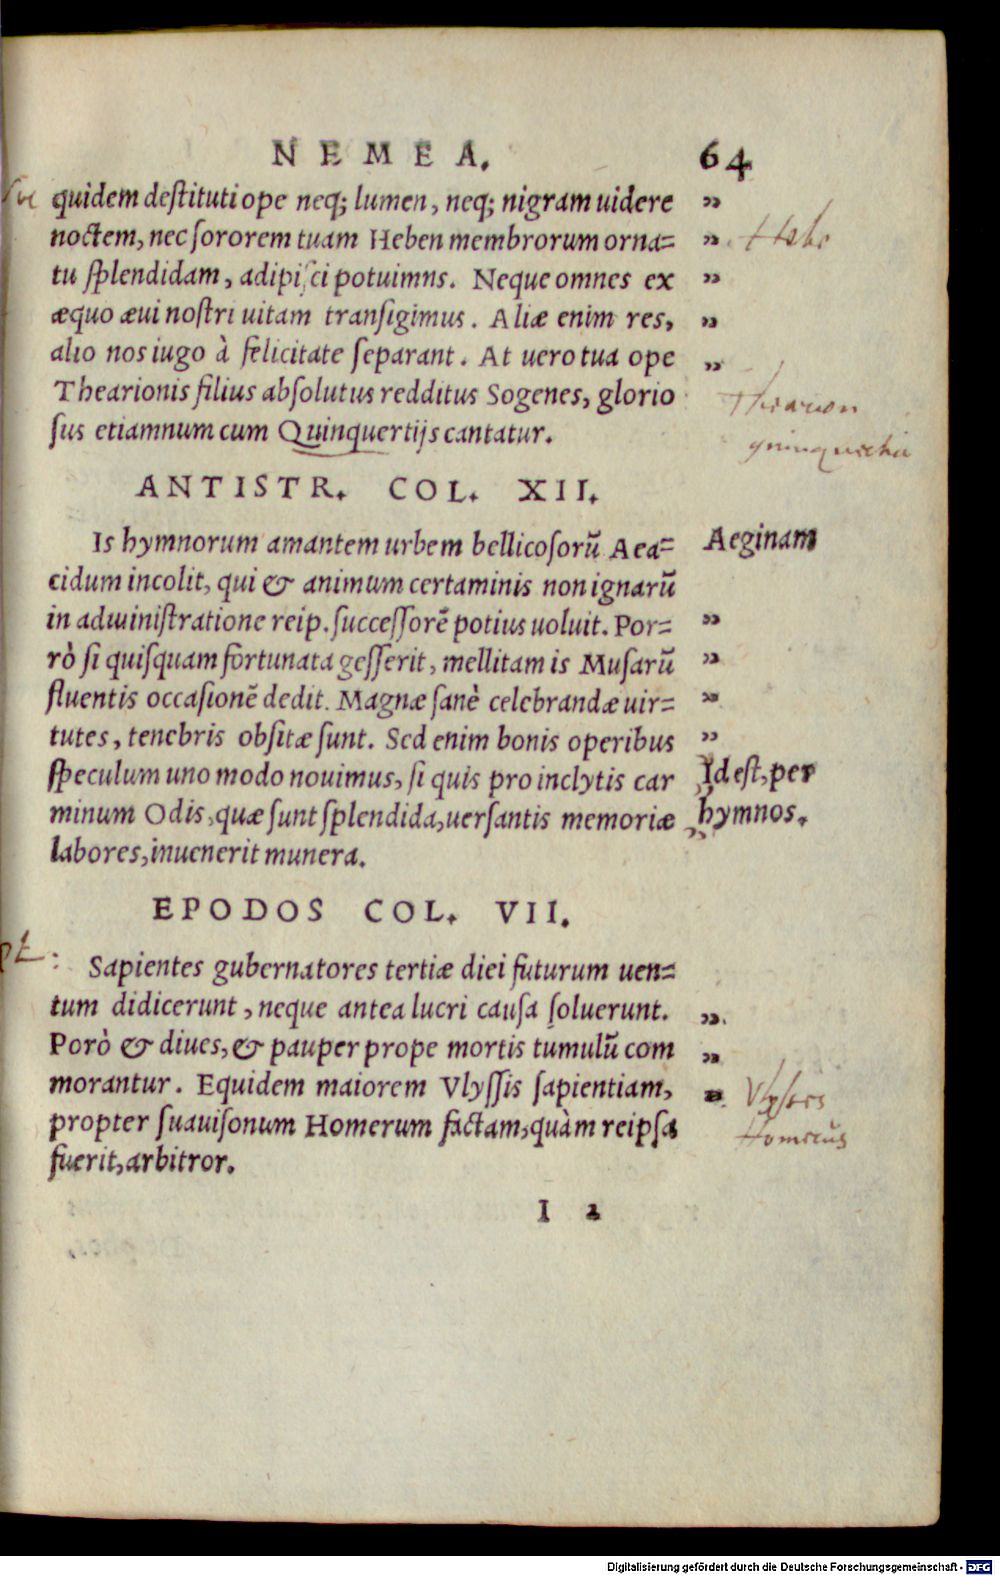 NEMEA. 64
quidem destituti ope neq; lumen, neq; nigram uidere ”
noctem, nec sororem tuam Heben membrorum orna= ” Hebe
tu splendidam, adipisci potuimns. Neque omnes ex ”
æquo æui nostri uitam transigimus. Aliæ enim res, ”
alio nos iugo à felicitate separant. At uero tua ope ”
Thearionis filius absolutus redditus Sogenes, glorio Thearion
sus etiamnum cum Quinquertijs cantatur.
ANTISTR. COL. XII.
Is hymnorum amantem urbem bellicosorũ Aea= Aeginam
cidum incolit, qui & animum certaminis non ignarũ
in administratione reip. successorẽ potius uoluit. Por= ”
rò si quisquam fortunata gesserit, mellitam is Musarũ ”
fluentis occasionẽ dedit. Magnæ sanè celebrandæ uir= ”
tutes, tenebris obsitæ sunt. Sed enim bonis operibus ”
speculum uno modo nouimus, si quis pro inclytis car Idest, per
minum Odis, quæ sunt splendida, uersantis memoriæ hymnos.
labores, inuenerit munera.
EPODOS COL. VII.
Sapientes gubernatores tertiæ diei futurum uen=
tum didicerunt, neque antea lucri causa soluerunt. ”
Porò & diues, & pauper prope mortis tumulũ com ”
morantur. Equidem maiorem Vlyssis sapientiam, ” Vlysses
propter suauisonum Homerum factam, quàm reipsa Homerus
fuerit, arbitror.
I 2
Digitalisierung gefördert durch die Deutsche Forschungsgemeinschaft - DFG